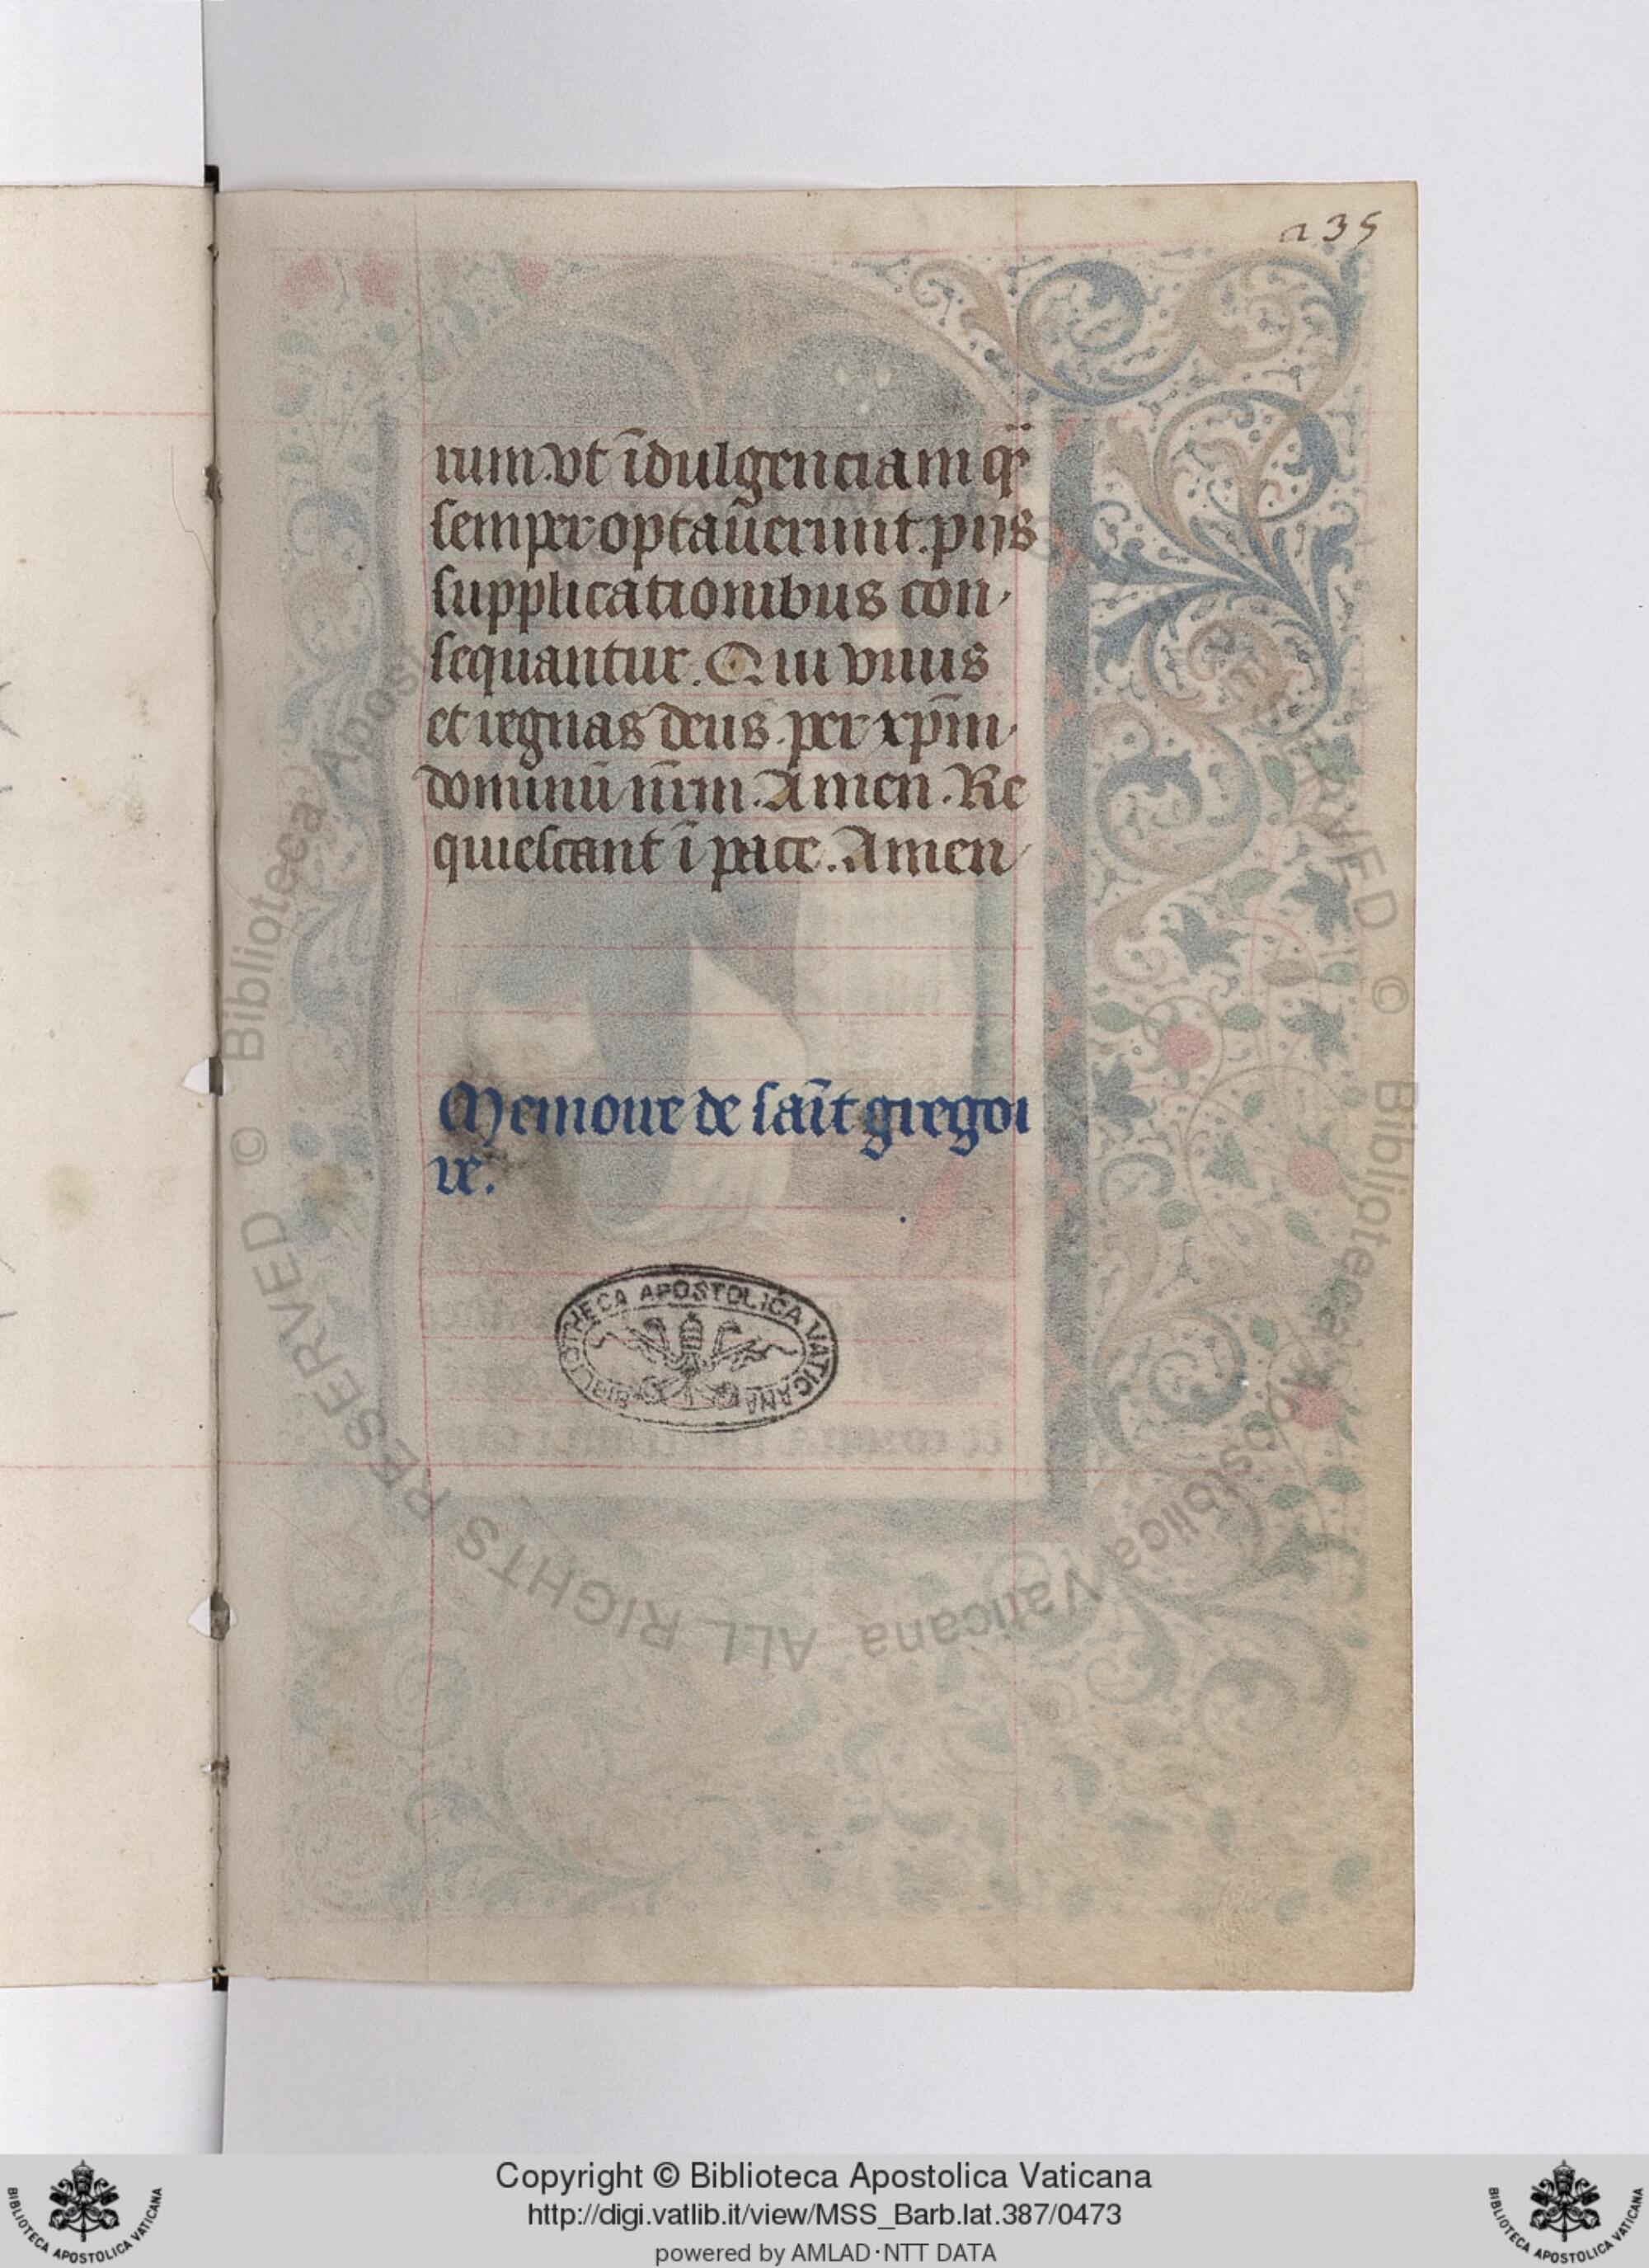 235
rum. vt īdulgenciam q̄
semper optaūerunt. pijs
supplicationibus con
sequantur. Qui viuis
et regnas deus. per xp̄m
dominū nr̄m. Amen. Re
quiescant ī pace. Amen
Memoire de sai̅t gregoi
re.
BIBLIOTHECA APOSTOLICA VATICANA
© Biblioteca Apostolica Vaticana ALL RIGHTS RESERVED
Copyright © Biblioteca Apostolica Vaticana
http://digi.vatlib.it/view/MSS_Barb.lat.387/0473
powered by AMLAD·NTT DATA
BIBLIOTECA APOSTOLICA VATICANA
BIBLIOTECA APOSTOLICA VATICANA